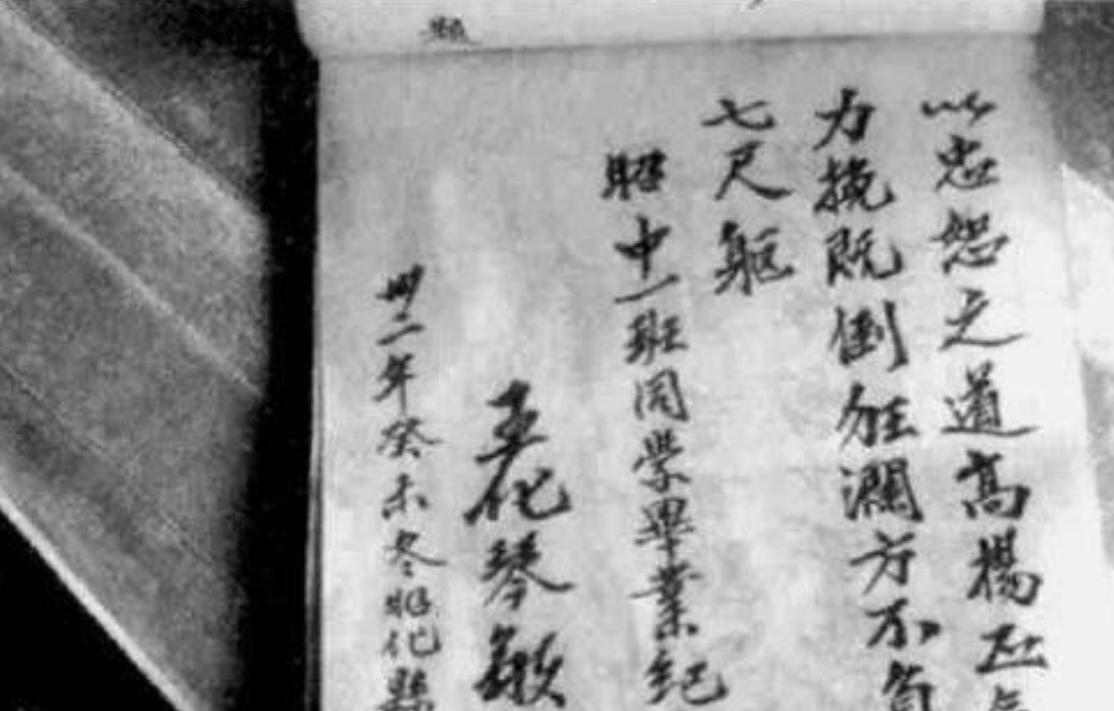 題
以忠恕之道高揚正
力挽既倒狂瀾方不負
七尺軀
昭中一班同學畢業紀
化琴敬
卅二年癸未冬昭化縣